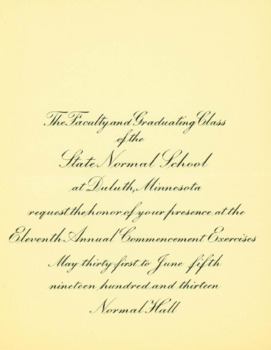 The Faculty and Graduating Class
of the
State Normal School
at Duluth, Minnesota
request the honor of your presence at the
Eleventh Annual Commencement Exercises
May thirty-first to June fifth
nineteen hundred and thirteen
Normal Hall